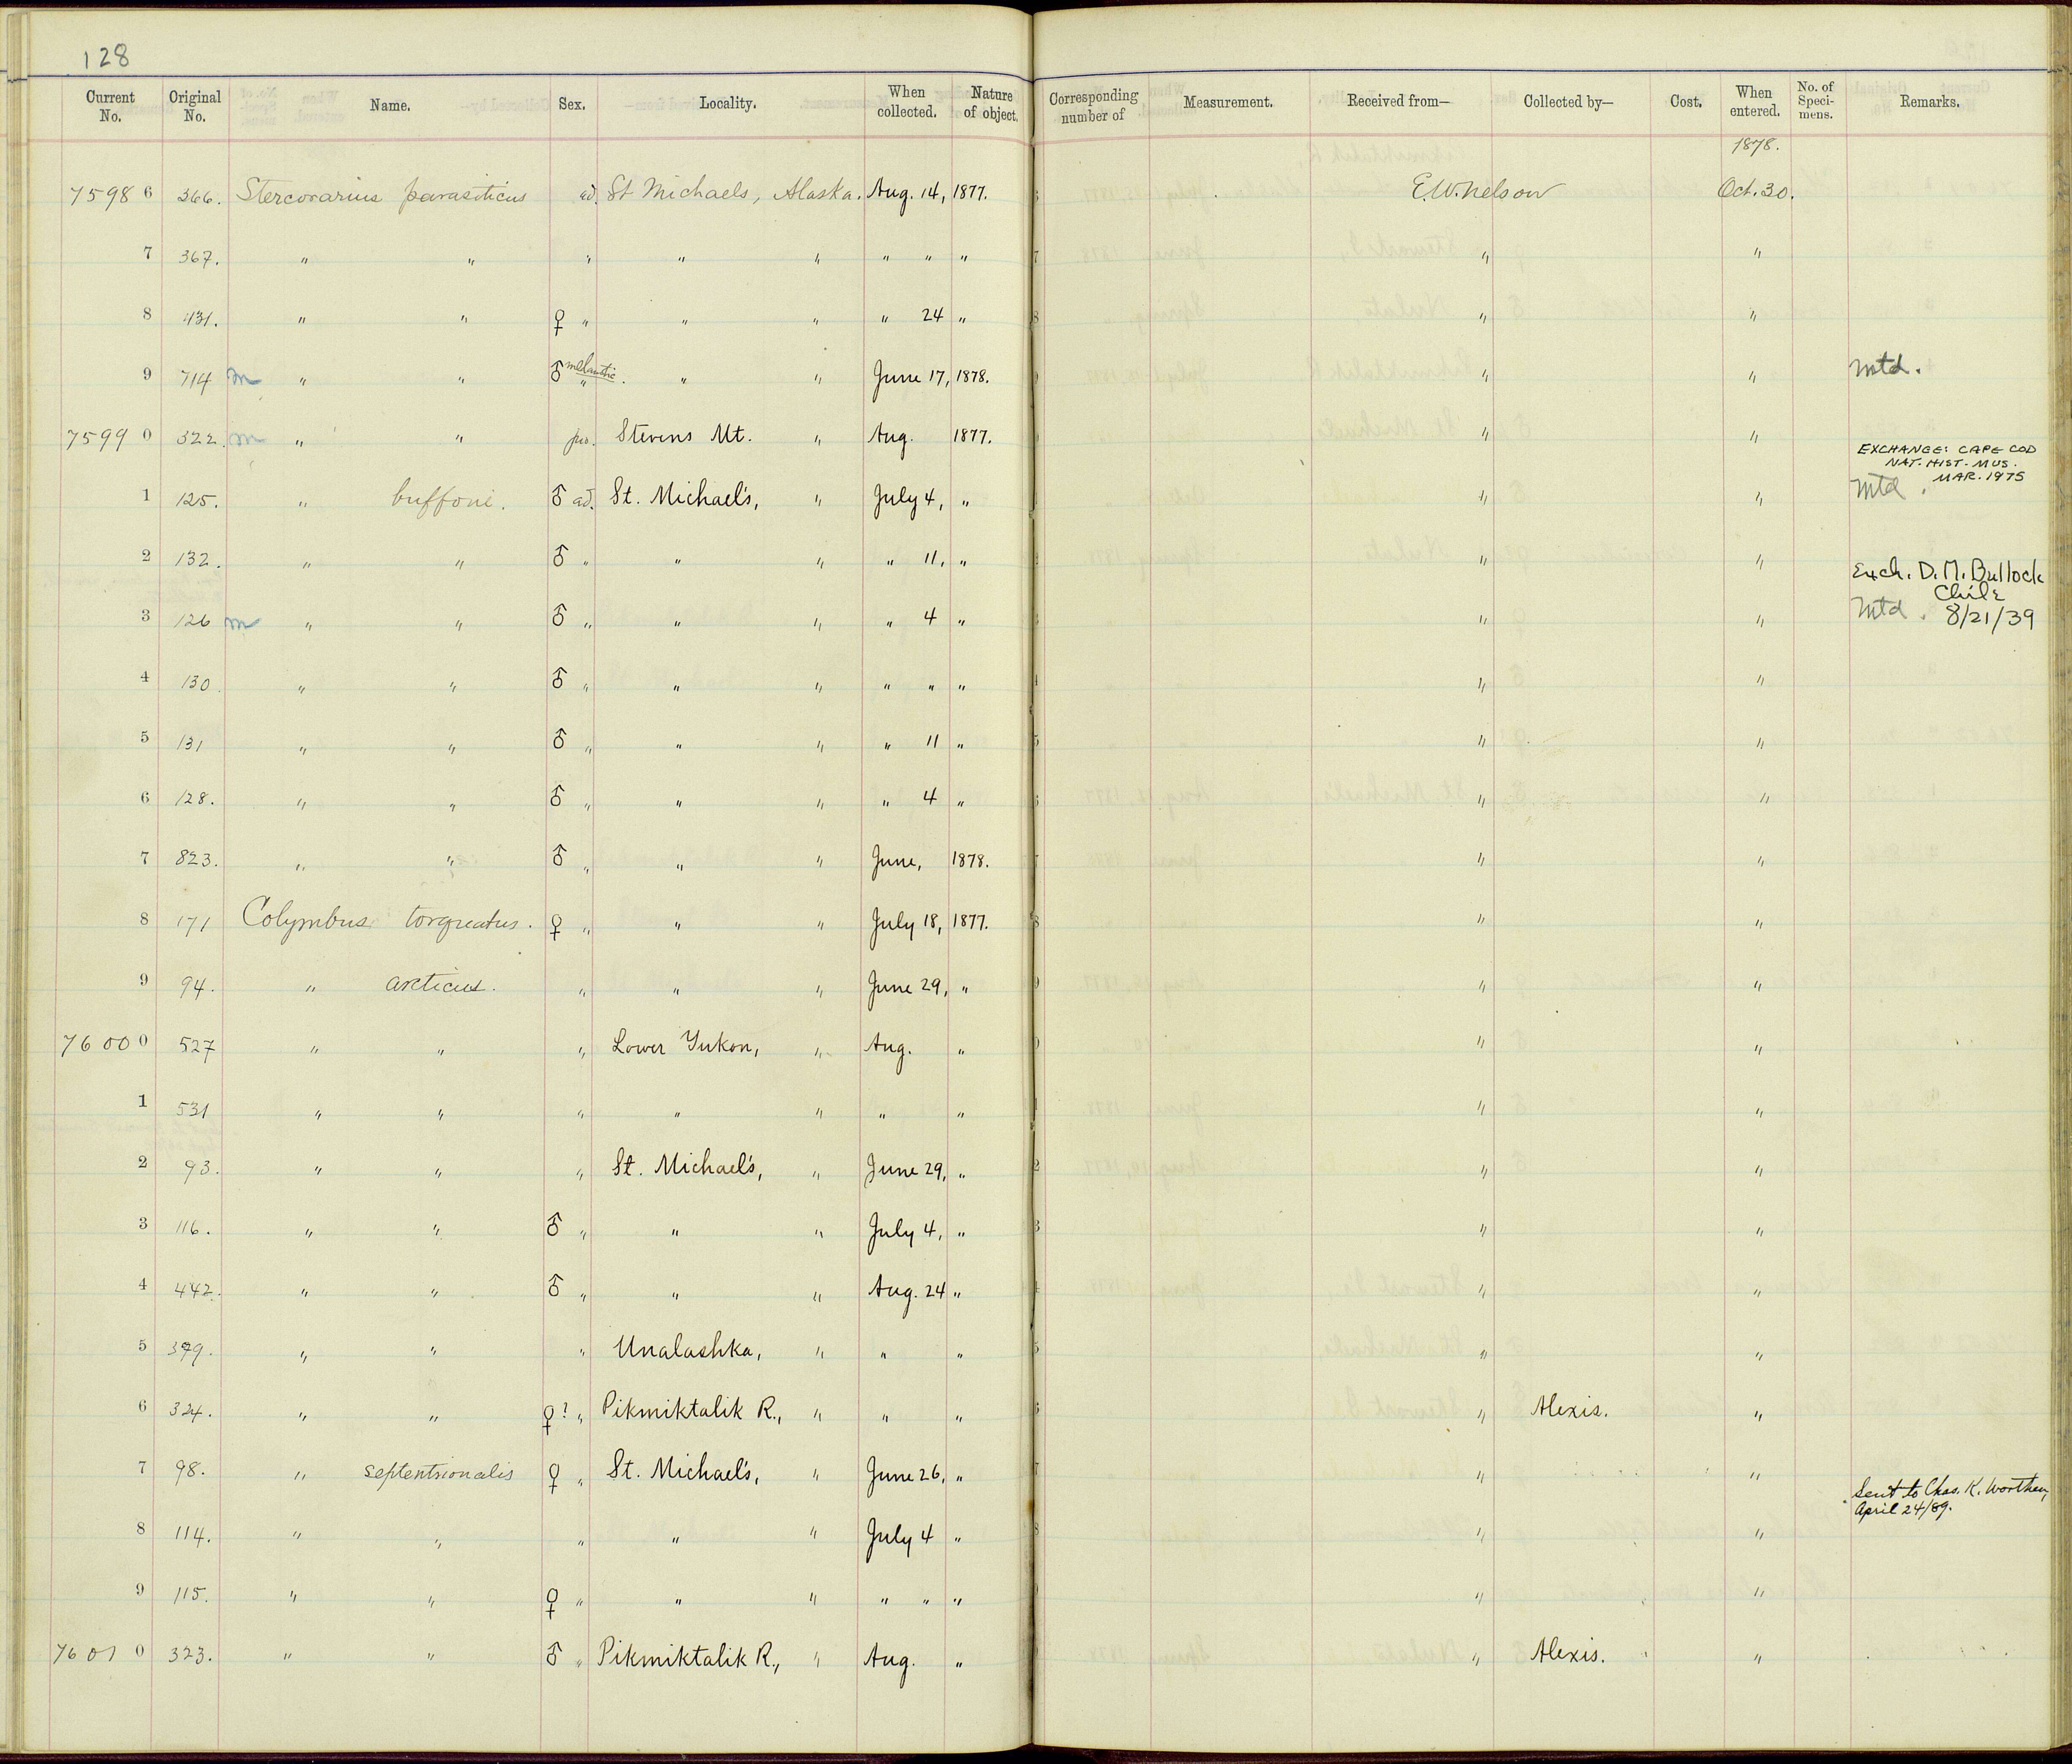 128
Current No. Original No. Name. Sex. Locality. When collected. Nature of object. Corresponding number of Measurement. Received from— Collected by— Cost. When entered. No. of Specimens. Remarks.
1878.
7598 6 366. Stercorarius parasiticus ad. St Michaels, Alaska. Aug. 14, 1877. E.W. Nelson Oct. 30.
7 367. " " " " " " " " " "
8 431. " " ♀ " " " " 24 " " "
9 714 m " " ♂ melanotic " " " June 17, 1878. " " Mtd.
7599 0 322. m " " juv. Stevens Mt. " Aug. 1877. " "
EXCHANGE: CAPE COD
NAT. HIST. MUS.
MAR. 1975
1 125. " buffoni. ♂ ad. St. Michael's, " July 4, " " " Mtd.
2 132. " " ♂ " " " " 11, " " "
Exch. D. M. Bullock
Chile
3 126 m " " ♂ " " " " 4 " " " Mtd. 8/21/39
4 130. " " ♂ " " " " " " " "
5 131 " " ♂ " " " " 11 " " "
6 128. " " ♂ " " " " 4 " " "
7 823. " " ♂ " " " June, 1878. " "
8 171 Colymbus torquatus. ♀ " " " July 18, 1877. " "
9 94. " arcticus. " " " June 29, " " "
7600 0 527 " " " Lower Yukon, " Aug. " " "
1 531 " " " " " " " " "
2 93. " " " St. Michael's, " June 29, " " "
3 116. " " ♂ " " " July 4, " " "
4 442. " " ♂ " " " Aug. 24 " " "
5 379. " " " Unalashka, " " " " "
6 324. " " ♀? " Pikmiktalik R., " " " " Alexis. "
7 98. " septentrionalis ♀ " St. Michael's, " June 26, " " "
Sent to Chas. K. Worthen,
April 24/89.
8 114. " " " " " July 4 " " "
9 115. " " ♀ " " " " " " " "
7601 0 323. " " ♂ " Pikmiktalik R., " Aug. " " Alexis. "